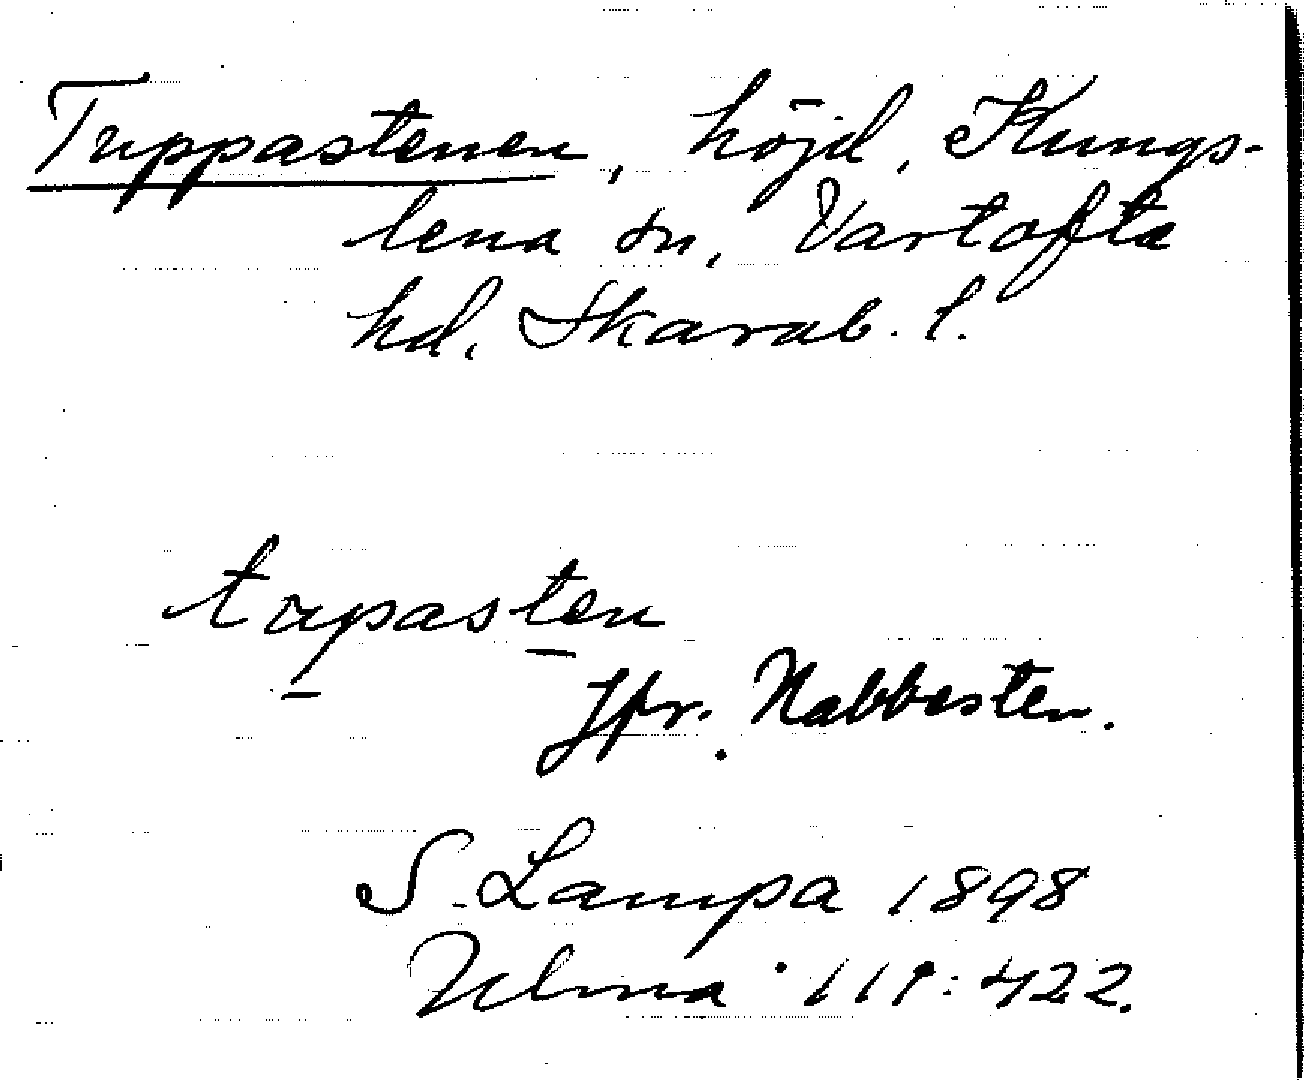 Tuppastenen, höjd, Kungs-
lena sn, Vartofta
hd. Skarab. l.
tɷpasten
Jfr. Nabbesten.
S. Lampa 1898
Ulma 111:422.